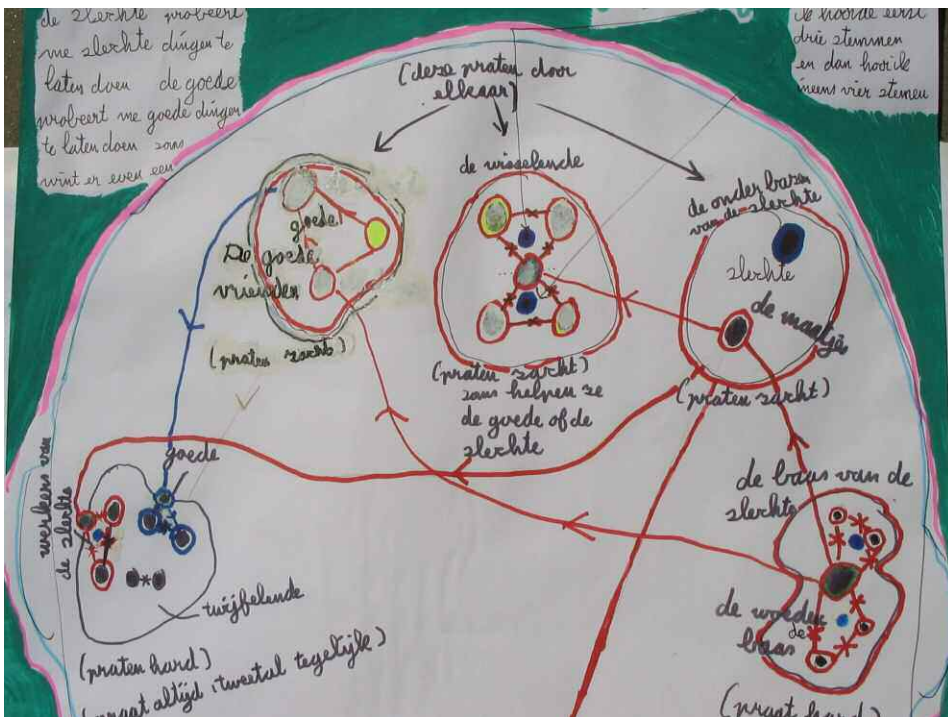 de slechte probeert
me slechte dingen te
laten doen de goede
probeert me goede dingen
te laten doen soms
wint er even een
ik hoorde eerst
drie stemmen
en dan hoor ik
ineens vier stemen
(deze praten door
elkaar)
de wisselende
de onder bazen
van de slechte
goede
De goede
vrienden
slechte
de maatje
(praten zacht)
(praten zacht)
soms helpen ze
de goede of de
slechte
(praten zacht)
goede
werkers van
de slechte
de baas van de
slechte
twijfelende
de woeden
de
baas
(praten hard)
(praat altijd tweetal tegelijk)
(praat hard)